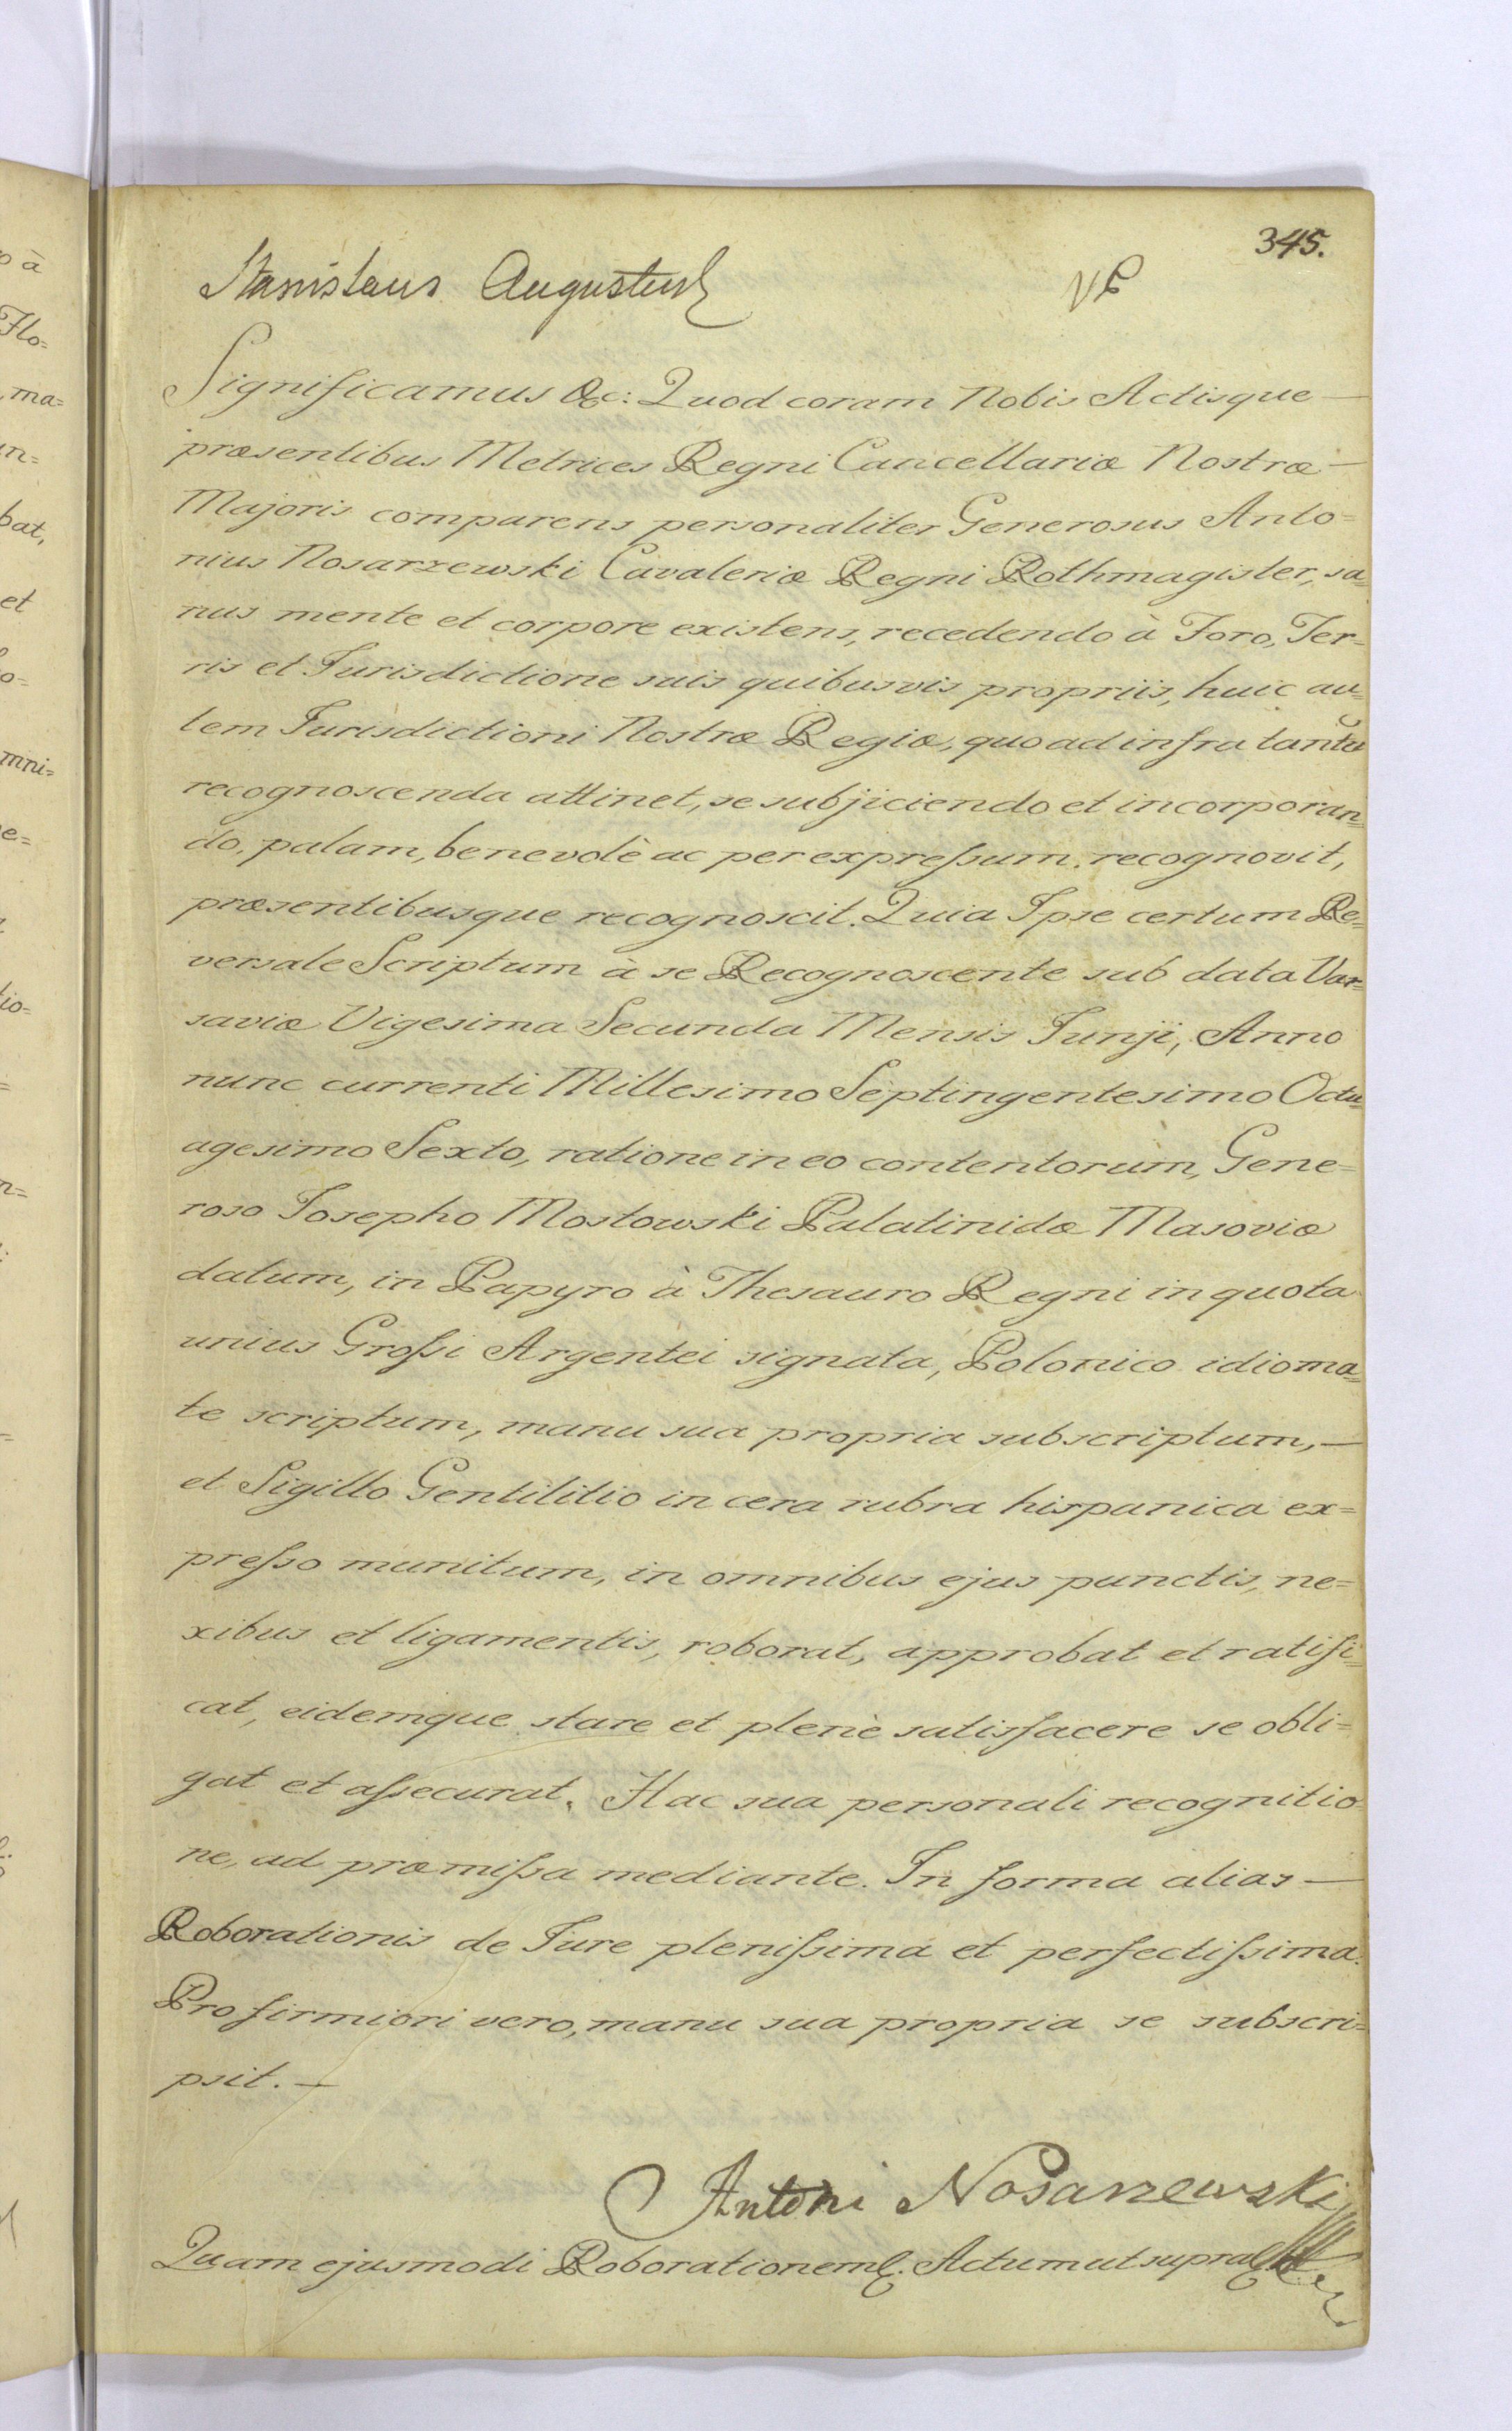 345.
Stanislaus Augustus
Significamus &c: Quod coram Nobis Actisque —
præsentibus Metrices Regni Cancellariæ Nostræ —
Majoris comparens personaliter Generosus Anto=
nius Nosarzewski Cavaleriæ Regni Rothmagister, sa=
nus mente et corpore existens, recedendo à Foro, Ter=
ris et Jurisdictione suis quibusvis propriis, huic au=
tem Jurisdictioni Nostræ Regiæ, quo ad infra tantũ
recognoscenda attinet, se subjiciendo et incorporan=
do, palam, benevolè ac per expreſsum recognovit,
præsentibusque recognoscit. Quia Ipse certum Re=
versale Scriptum à se Recognoscente sub data Var=
saviæ Vigesima Secunda Mensis Junji, Anno
nunc currenti Millesimo Septingentesimo Octu=
agesimo Sexto, ratione in eo contentorum, Gene=
roso Josepho Mostowski Palatinidæ Masoviæ
datum, in Papyro à Thesauro Regni in quota
unius Groſsi Argentei signata, Polonico idioma=
te scriptum, manu sua propria subscriptum, —
et Sigillo Gentilitio in cera rubra hispanica ex=
preſso munitum, in omnibus ejus punctis, ne=
xibus et ligamentis, roborat, approbat et ratifi=
cat, eidemque stare et plenè satisfacere se obli=
gat et aſsecurat. Hac sua personali recognitio
ne, ad præmiſsa mediante. In forma alias —
Roborationis de Jure pleniſsima et perfectiſsima.
Pro firmiori vero, manu sua propria se subscri=
psit. —
Antoni Nosarzewski
Quam ejusmodi Roborationem &. Actum ut supra